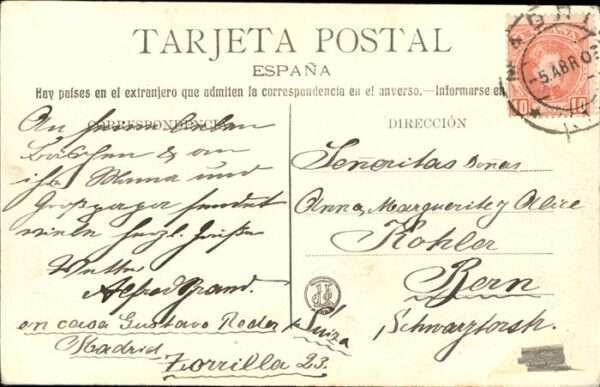 TARJETA POSTAL
ESPAÑA
Hay países en el extranjero que admiten la correspondencia en el anverso.—Informarse en
CORRESPONDENCIA
An seine lieben
Bäschen & an
ihre Mama und
Grosspapa sendet
viele herzl. Grüße
Vetter
Alfred Brand.
en casa Gustavo Reder
Madrid
Zorrilla 23.
DIRECCIÓN
Señoritas Doñas
Anna, Marguerite y Alice
Kohler
Bern
Suiza
Schwarztorstr.
MADRID
5 ABR 0
10 10